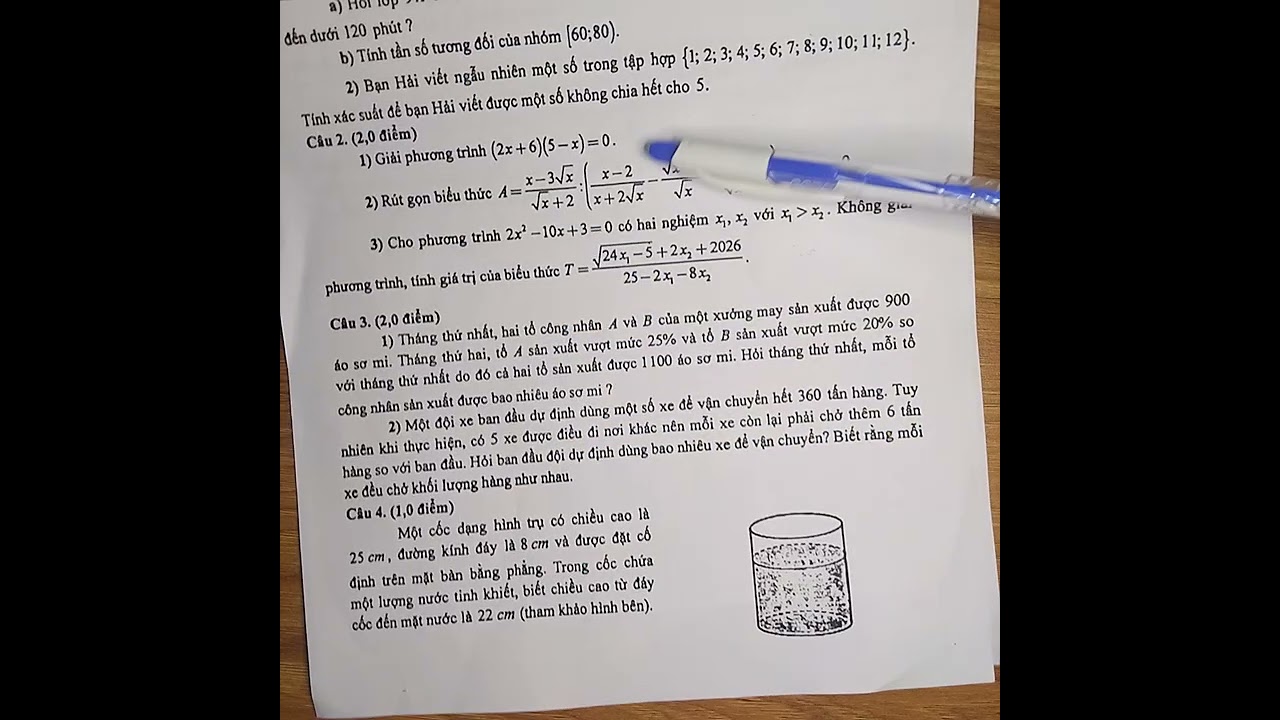 a) Hỏi lớp
đến dưới 120 phút ?
b) Tính tần số tương đối của nhóm [60;80).
2) Bạn Hải viết ngẫu nhiên một số trong tập hợp {1; 2; 3; 4; 5; 6; 7; 8; 9; 10; 11; 12}.
Tính xác suất để bạn Hải viết được một số không chia hết cho 5.
Câu 2. (2,0 điểm)
1) Giải phương trình (2x+6)(5−x)=0.
2) Rút gọn biểu thức A = (x−3√x)/(√x+2) : ( (x−2)/(x+2√x) − √x
3) Cho phương trình 2x²−10x+3=0 có hai nghiệm x₁, x₂ với x₁ > x₂. Không giải
phương trình, tính giá trị của biểu thức T = (√(24x₁−5)+2x₂+2026)/(25−2x₁−8x₂).
Câu 3. (2,0 điểm)
1) Tháng thứ nhất, hai tổ công nhân A và B của một xưởng may sản xuất được 900
áo sơ mi. Tháng thứ hai, tổ A sản xuất vượt mức 25% và tổ B sản xuất vượt mức 20% so
với tháng thứ nhất do đó cả hai tổ sản xuất được 1100 áo sơ mi. Hỏi tháng thứ nhất, mỗi tổ
công nhân sản xuất được bao nhiêu áo sơ mi ?
2) Một đội xe ban đầu dự định dùng một số xe để vận chuyển hết 360 tấn hàng. Tuy
nhiên khi thực hiện, có 5 xe được điều đi nơi khác nên mỗi xe còn lại phải chở thêm 6 tấn
hàng so với ban đầu. Hỏi ban đầu đội dự định dùng bao nhiêu xe để vận chuyển? Biết rằng mỗi
xe đều chở khối lượng hàng như nhau.
Câu 4. (1,0 điểm)
Một cốc dạng hình trụ có chiều cao là
25 cm, đường kính đáy là 8 cm và được đặt cố
định trên mặt bàn bằng phẳng. Trong cốc chứa
một lượng nước tinh khiết, biết chiều cao từ đáy
cốc đến mặt nước là 22 cm (tham khảo hình bên).